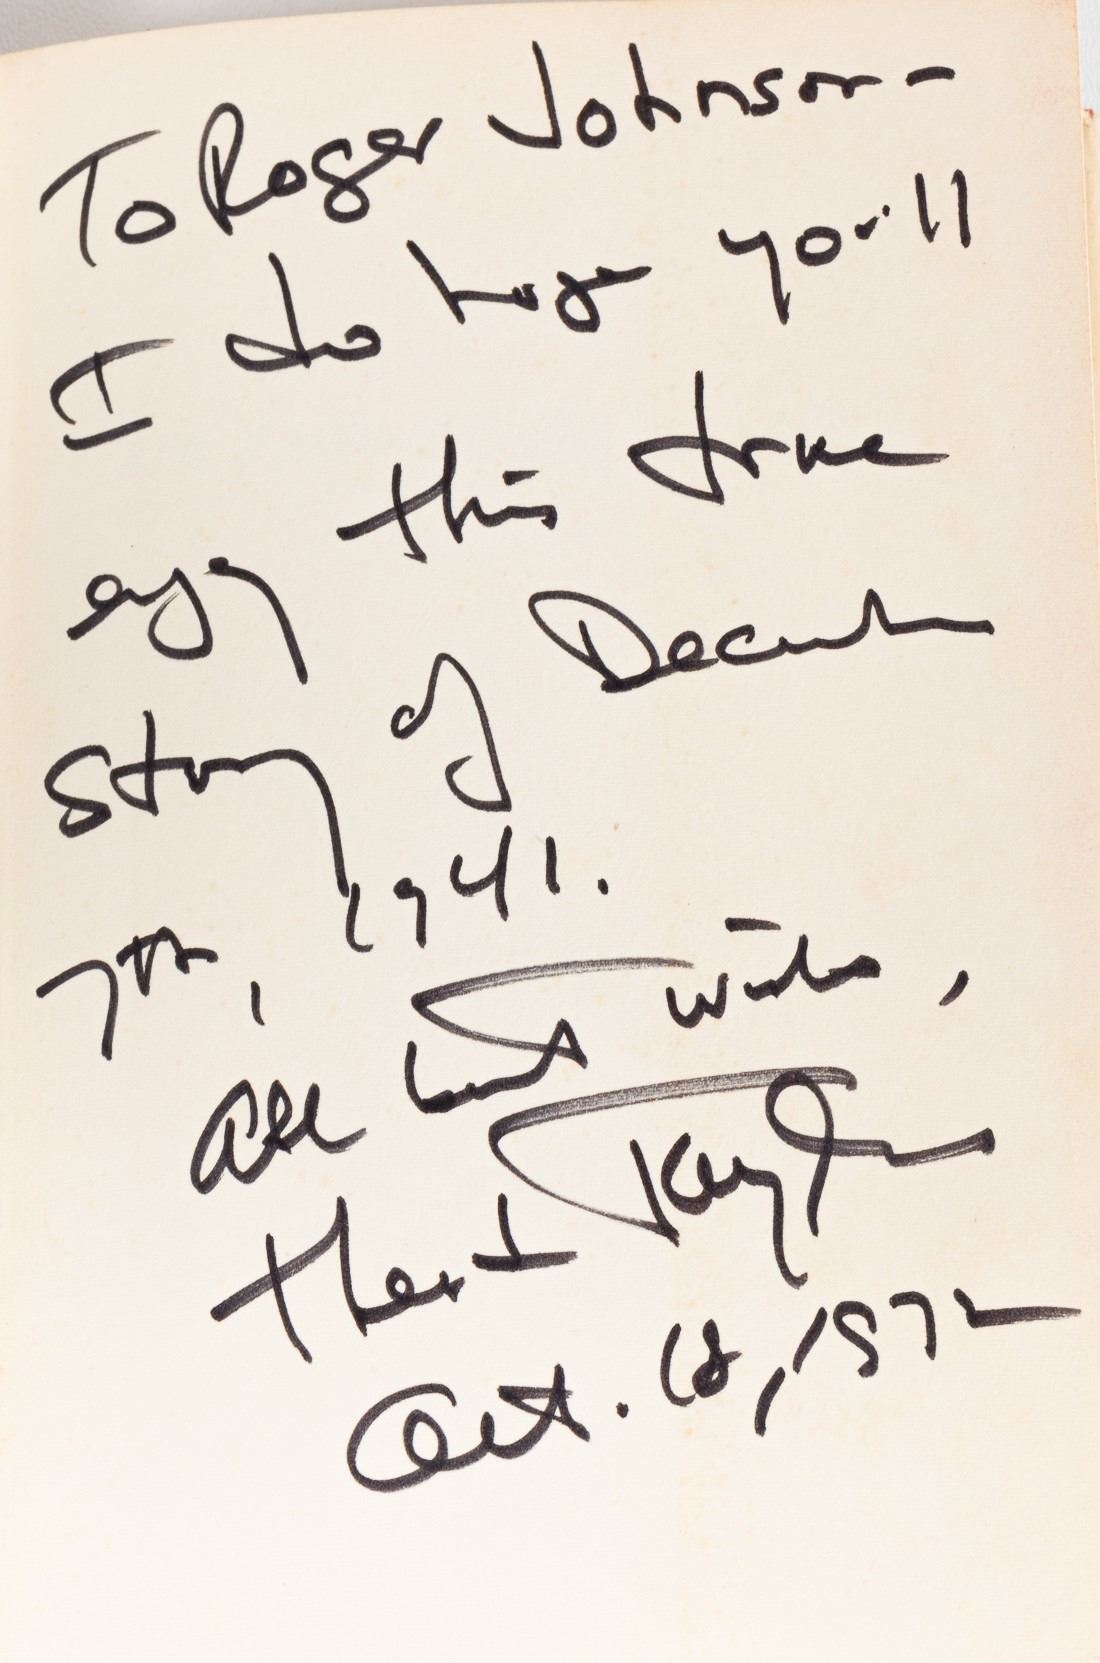 To Roger Johnson -
I do hope you'll
enjoy this true
story of December
7th, 1941.
All best wishes,
Theod Taylor
Oct. 18, 1972